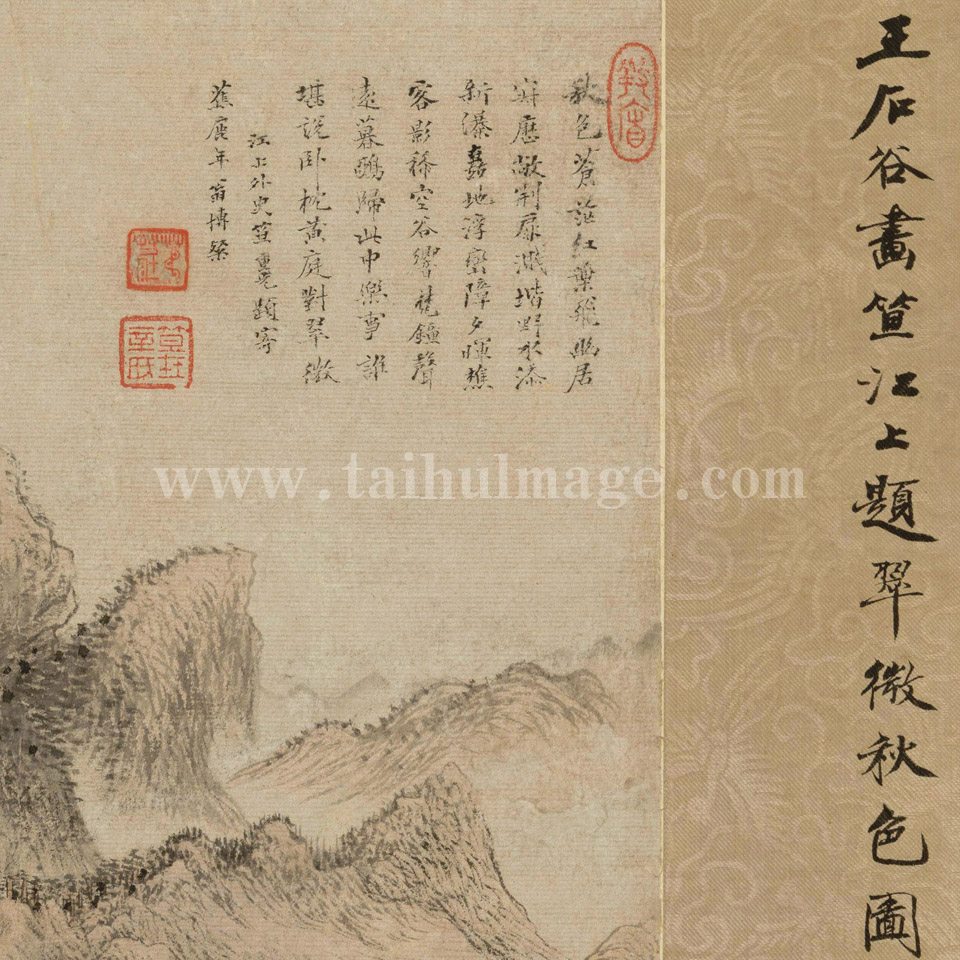 王石谷畫笪江上題翠微秋色圖
秋色蒼茫紅葉飛幽居
歷敞荆扉濺堦野水添
新瀑
地浮嵐障夕暉樵
客影稀空谷響梵鐘聲
遠暮鴉歸此中樂事誰
堪說卧枕黃庭對翠微
江上外史笪重光題寄
年翁博粲
www.taihuImage.com